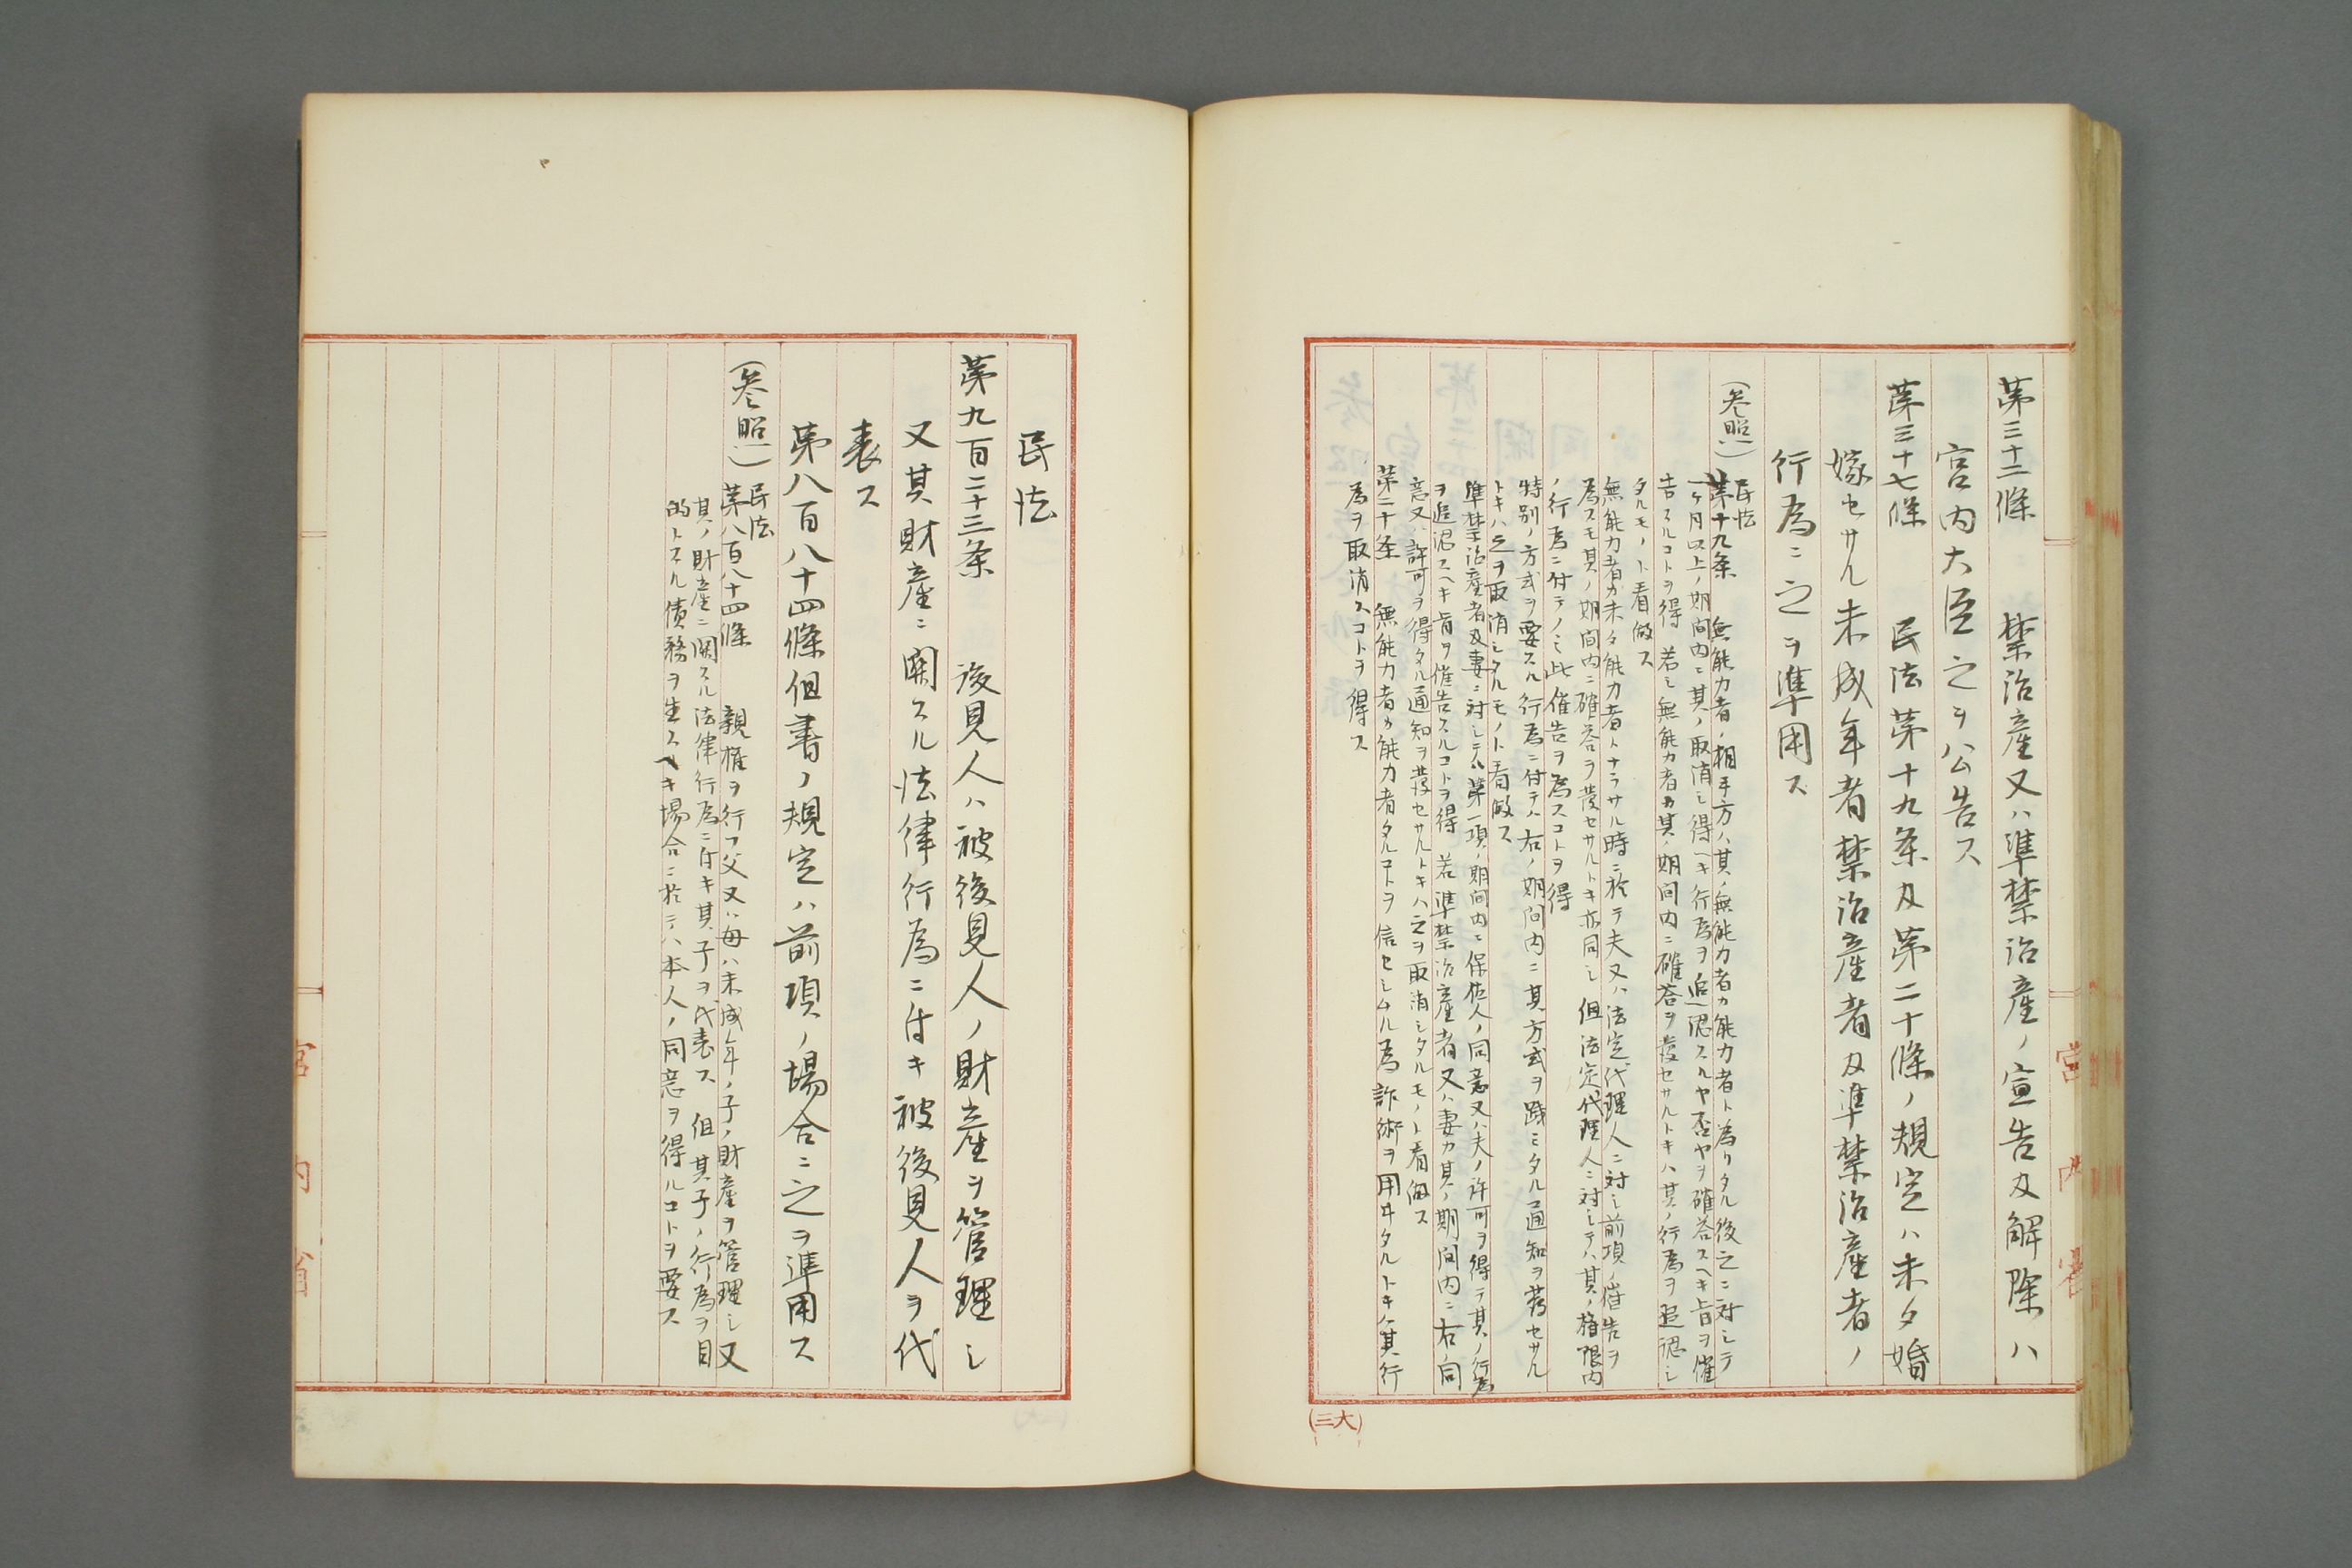 第三十二條　禁治産又ハ準禁治産ノ宣告及解除ハ
宮内大臣之ヲ公告ス
第三十七條　民法第十九条及第二十條ノ規定ハ未タ婚
嫁セサル未成年者禁治産者及準禁治産者ノ
行為ニ之ヲ準用ス
(参照)
民法
第十九条　無能力者ノ相手方ハ其ノ無能力者カ能力者ト為リタル後之ニ対シテ
一ケ月以上ノ期間内ニ其ノ取消シ得ヘキ行為ヲ追認スルヤ否ヤヲ確答スヘキ旨ヲ催
告スルコトヲ得　若シ無能力者カ其ノ期間内ニ確答ヲ発セサルトキハ其ノ行為ヲ追認シ
タルモノト看做ス
無能力者カ未タ能力者トナラサル時ニ於テ夫又ハ法定代理人ニ対シ前項ノ催告ヲ
為スモ其ノ期間内ニ確答ヲ発セサルトキ亦同シ　但法定代理人ニ対シテハ其ノ権限内
ノ行為ニ付テノミ此催告ヲ為スコトヲ得
特別ノ方式ヲ要スル行為ニ付テハ右ノ期間内ニ其方式ヲ践ミタル通知ヲ発セサル
トキハ之ヲ取消シタルモノト看做ス
準禁治産者及妻ニ対シテハ第一項ノ期間内ニ保佐人ノ同意又ハ夫ノ許可ヲ得テ其ノ行為
ヲ追認スヘキ旨ヲ催告スルコトヲ得　若準禁治産者又ハ妻カ其ノ期間内ニ右ノ同
意又ハ許可ヲ得タル通知ヲ発セサルトキハ之ヲ取消シタルモノト看做ス
第二十条　無能力者カ能力者タルコトヲ信セシムル為詐術ヲ用ヰタルトキハ其行
為ヲ取消スコトヲ得ス
宮内省
(大三)
民法
第九百二十三条　後見人ハ被後見人ノ財産ヲ管理シ
又其財産ニ関スル法律行為ニ付キ被後見人ヲ代
表ス
第八百八十四條但書ノ規定ハ前項ノ場合ニ之ヲ準用ス
(参照)
民法
第八百八十四條　親権ヲ行フ父又ハ母ハ未成年ノ子ノ財産ヲ管理シ又
其ノ財産ニ関スル法律行為ニ付キ其子ヲ代表ス　但其子ノ行為ヲ目
的トスル債務ヲ生スヘキ場合ニ於テハ本人ノ同意ヲ得ルコトヲ要ス
宮内省